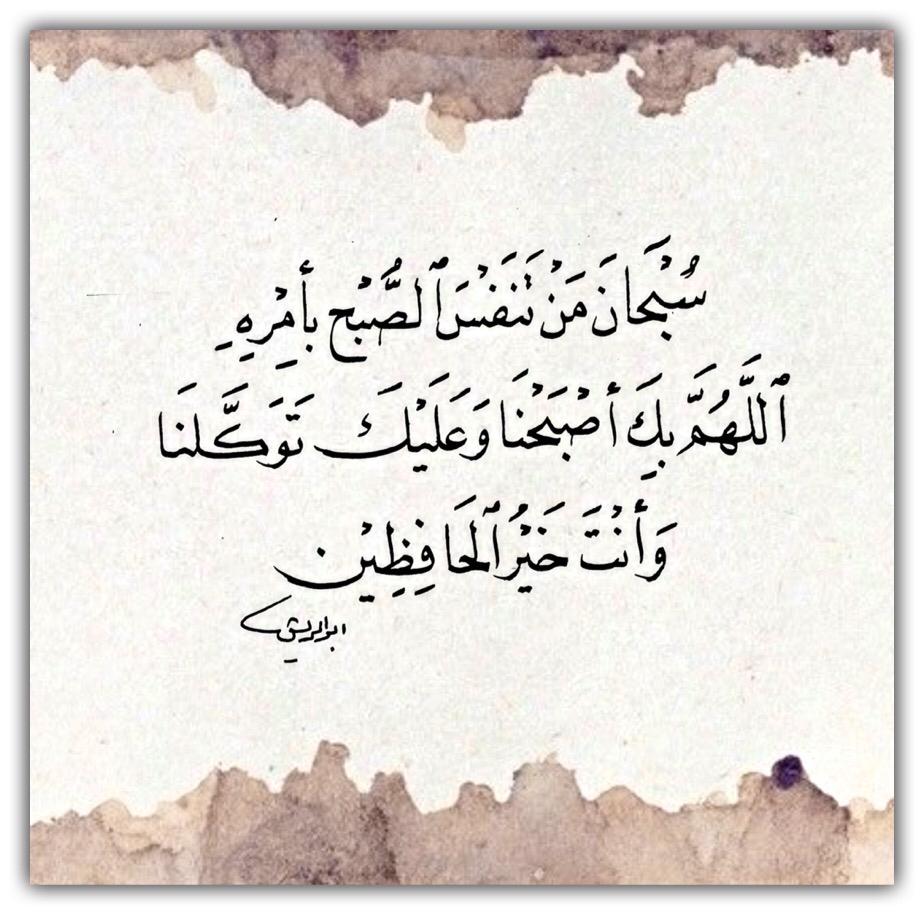 سُبْحَانَ مَنْ تَنَفَسَ ٱلصُّبْح بِأَمْرِهِ
ٱللَّهُمَّ بِكَ أَصْبَحْنَا وَعَلَيْكَ تَوَكَّلنَا
وَأَنْتَ خَيْرُ ٱلحَافِظِيْن